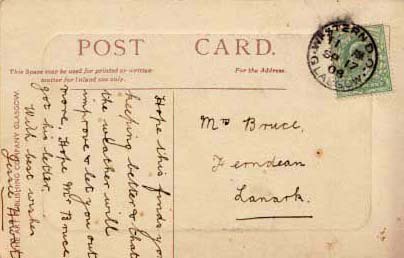 POST CARD.
This Space may be used for printed or written
matter for Inland use only.
For the Address.
WESTERN D.O.
SP 17
09
GLASGOW
Hope this finds you
keeping better & that
the weather will
improve & let you out
more. Hope Mr Bruce
got his letter.
With best wishes
Jessie
Mrs Bruce,
Ferndean
Lanark.
PUBLISHING COMPANY GLASGOW